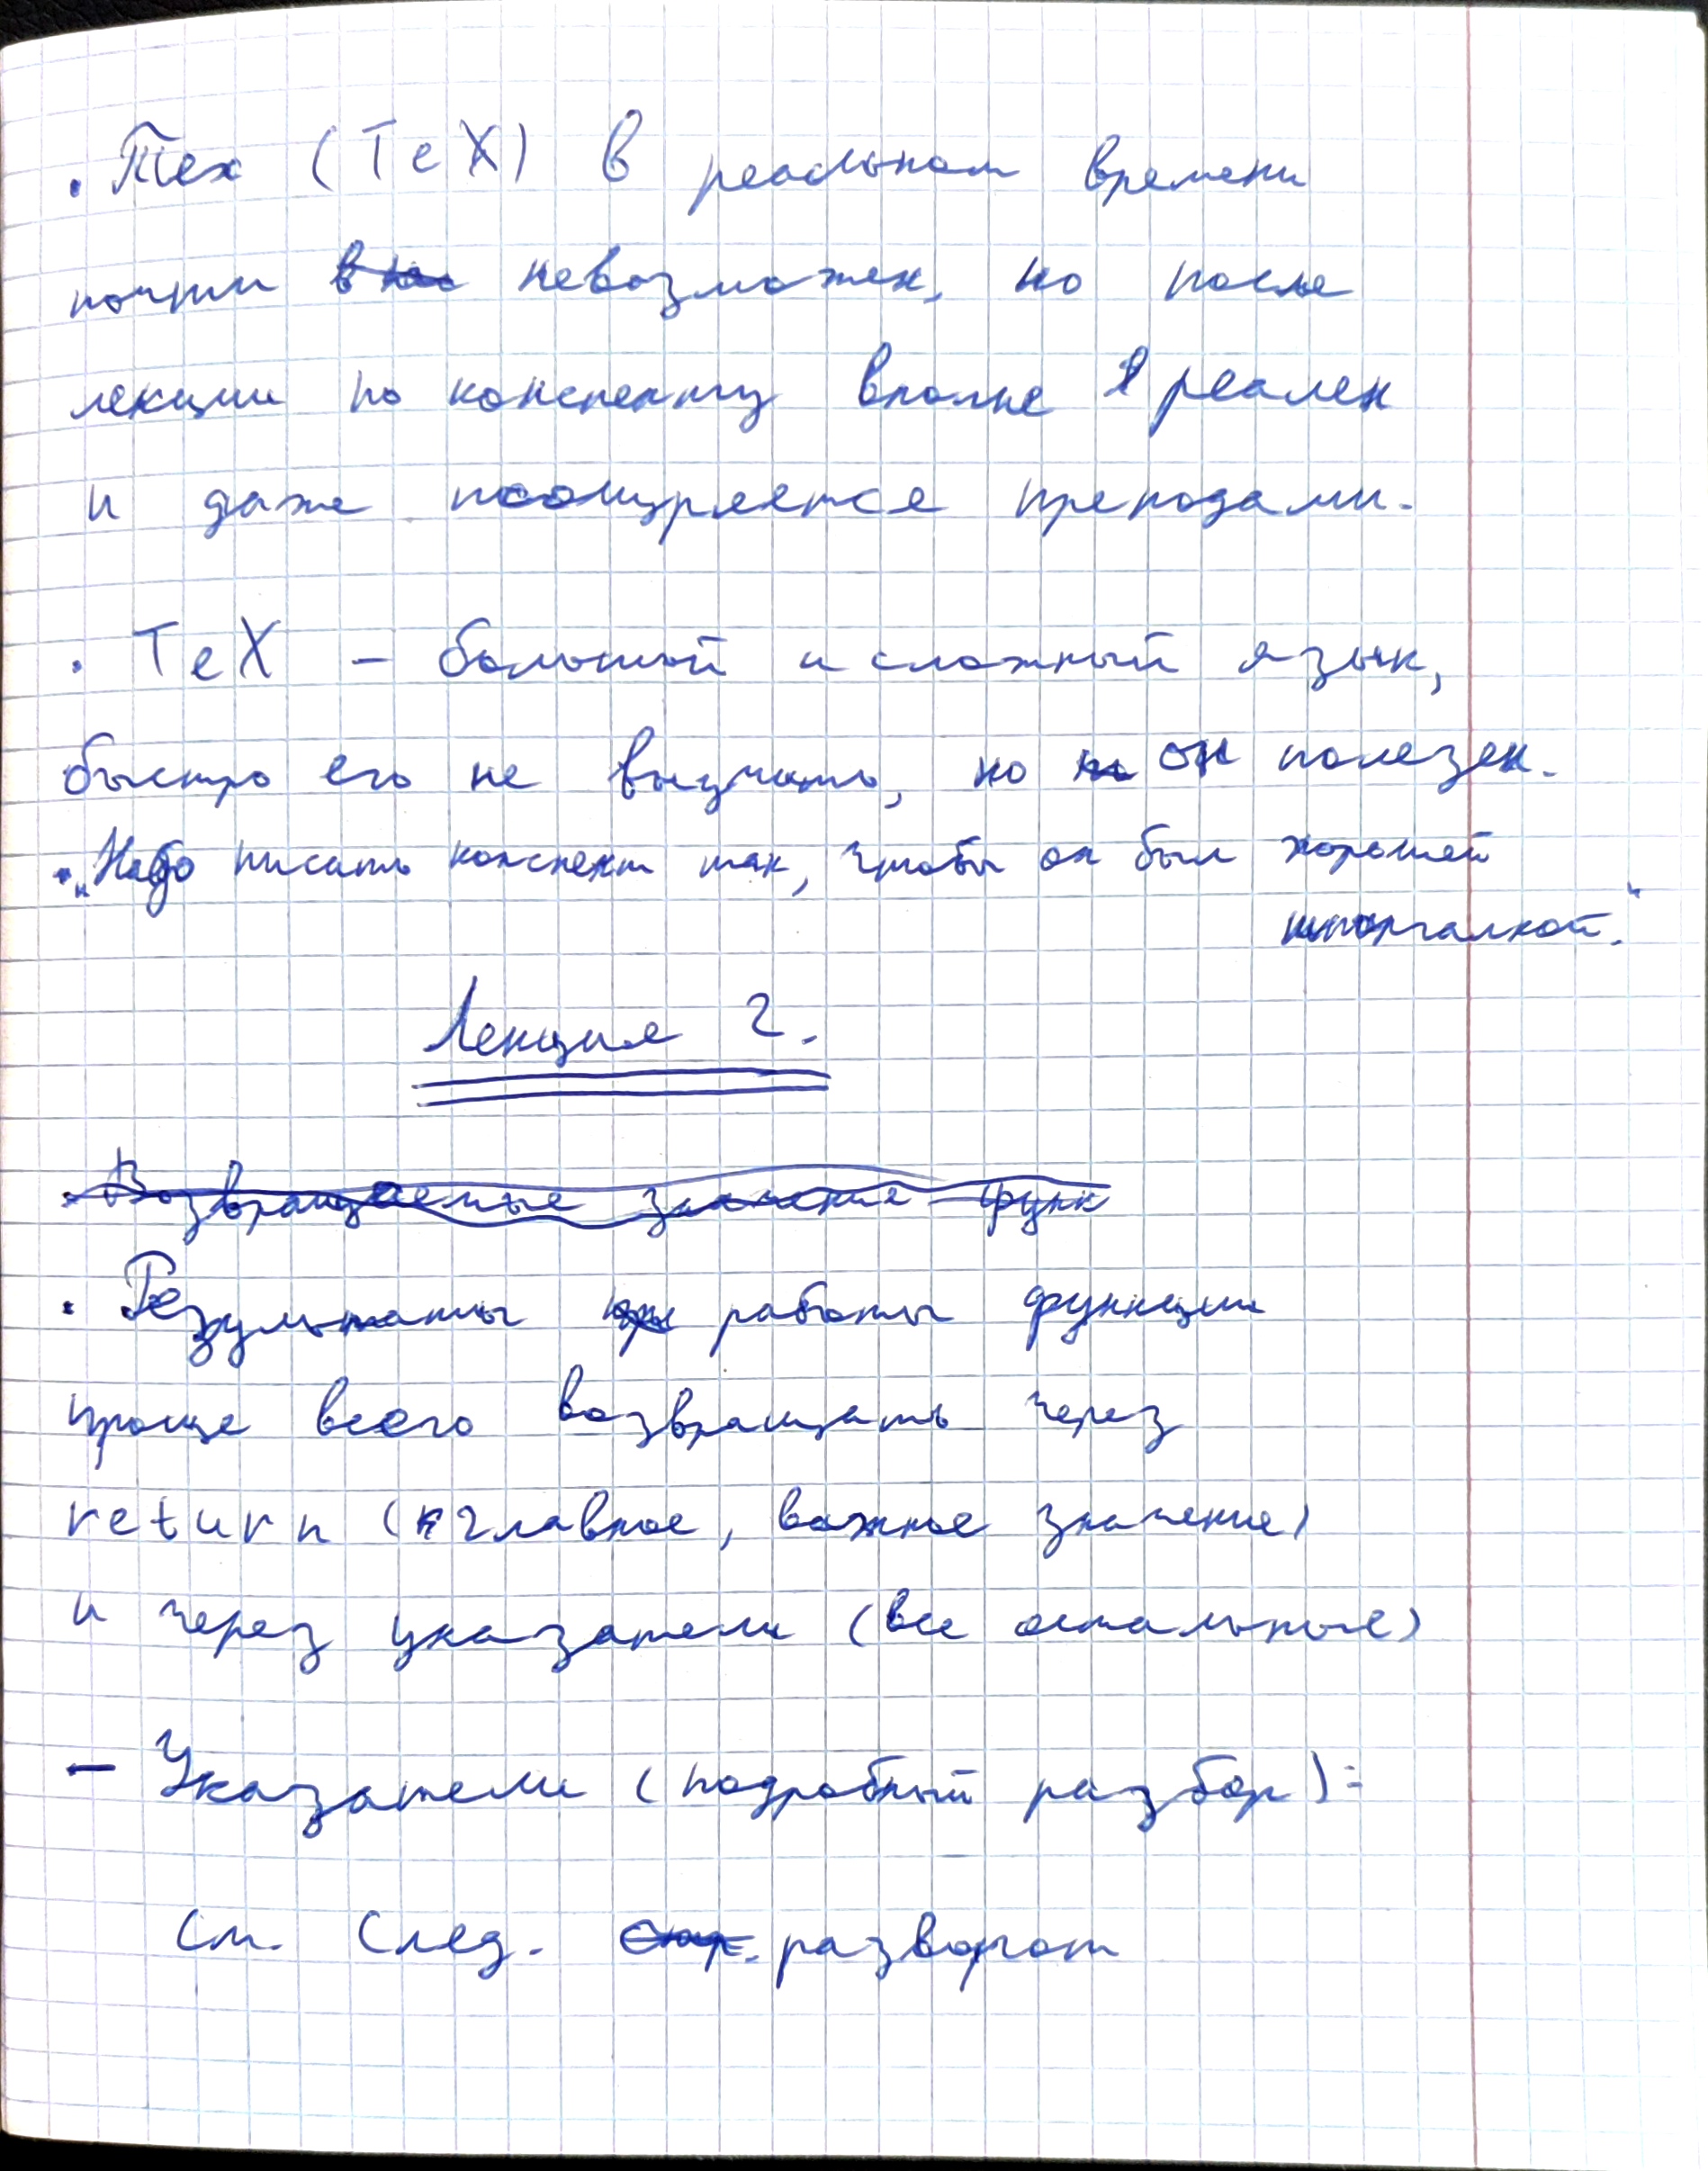 · Тех (TeX) в реальном времени
почти невозможен, но после
лекции по конспекту вполне реален
и даже поощряется преподами.
· TeX – большой и сложный язык,
быстро его не выучить, но он полезен.
· „Надо писать конспект так, чтобы он был хорошей
шпоргалкой."
Лекция 2.
· Возвращаемые значение функ
· Результаты работы функции
проще всего возвращать через
return (главное, важное значение)
и через указатели (все остальные)
– Указатели (подробный разбор):
См. след. стр. разворот